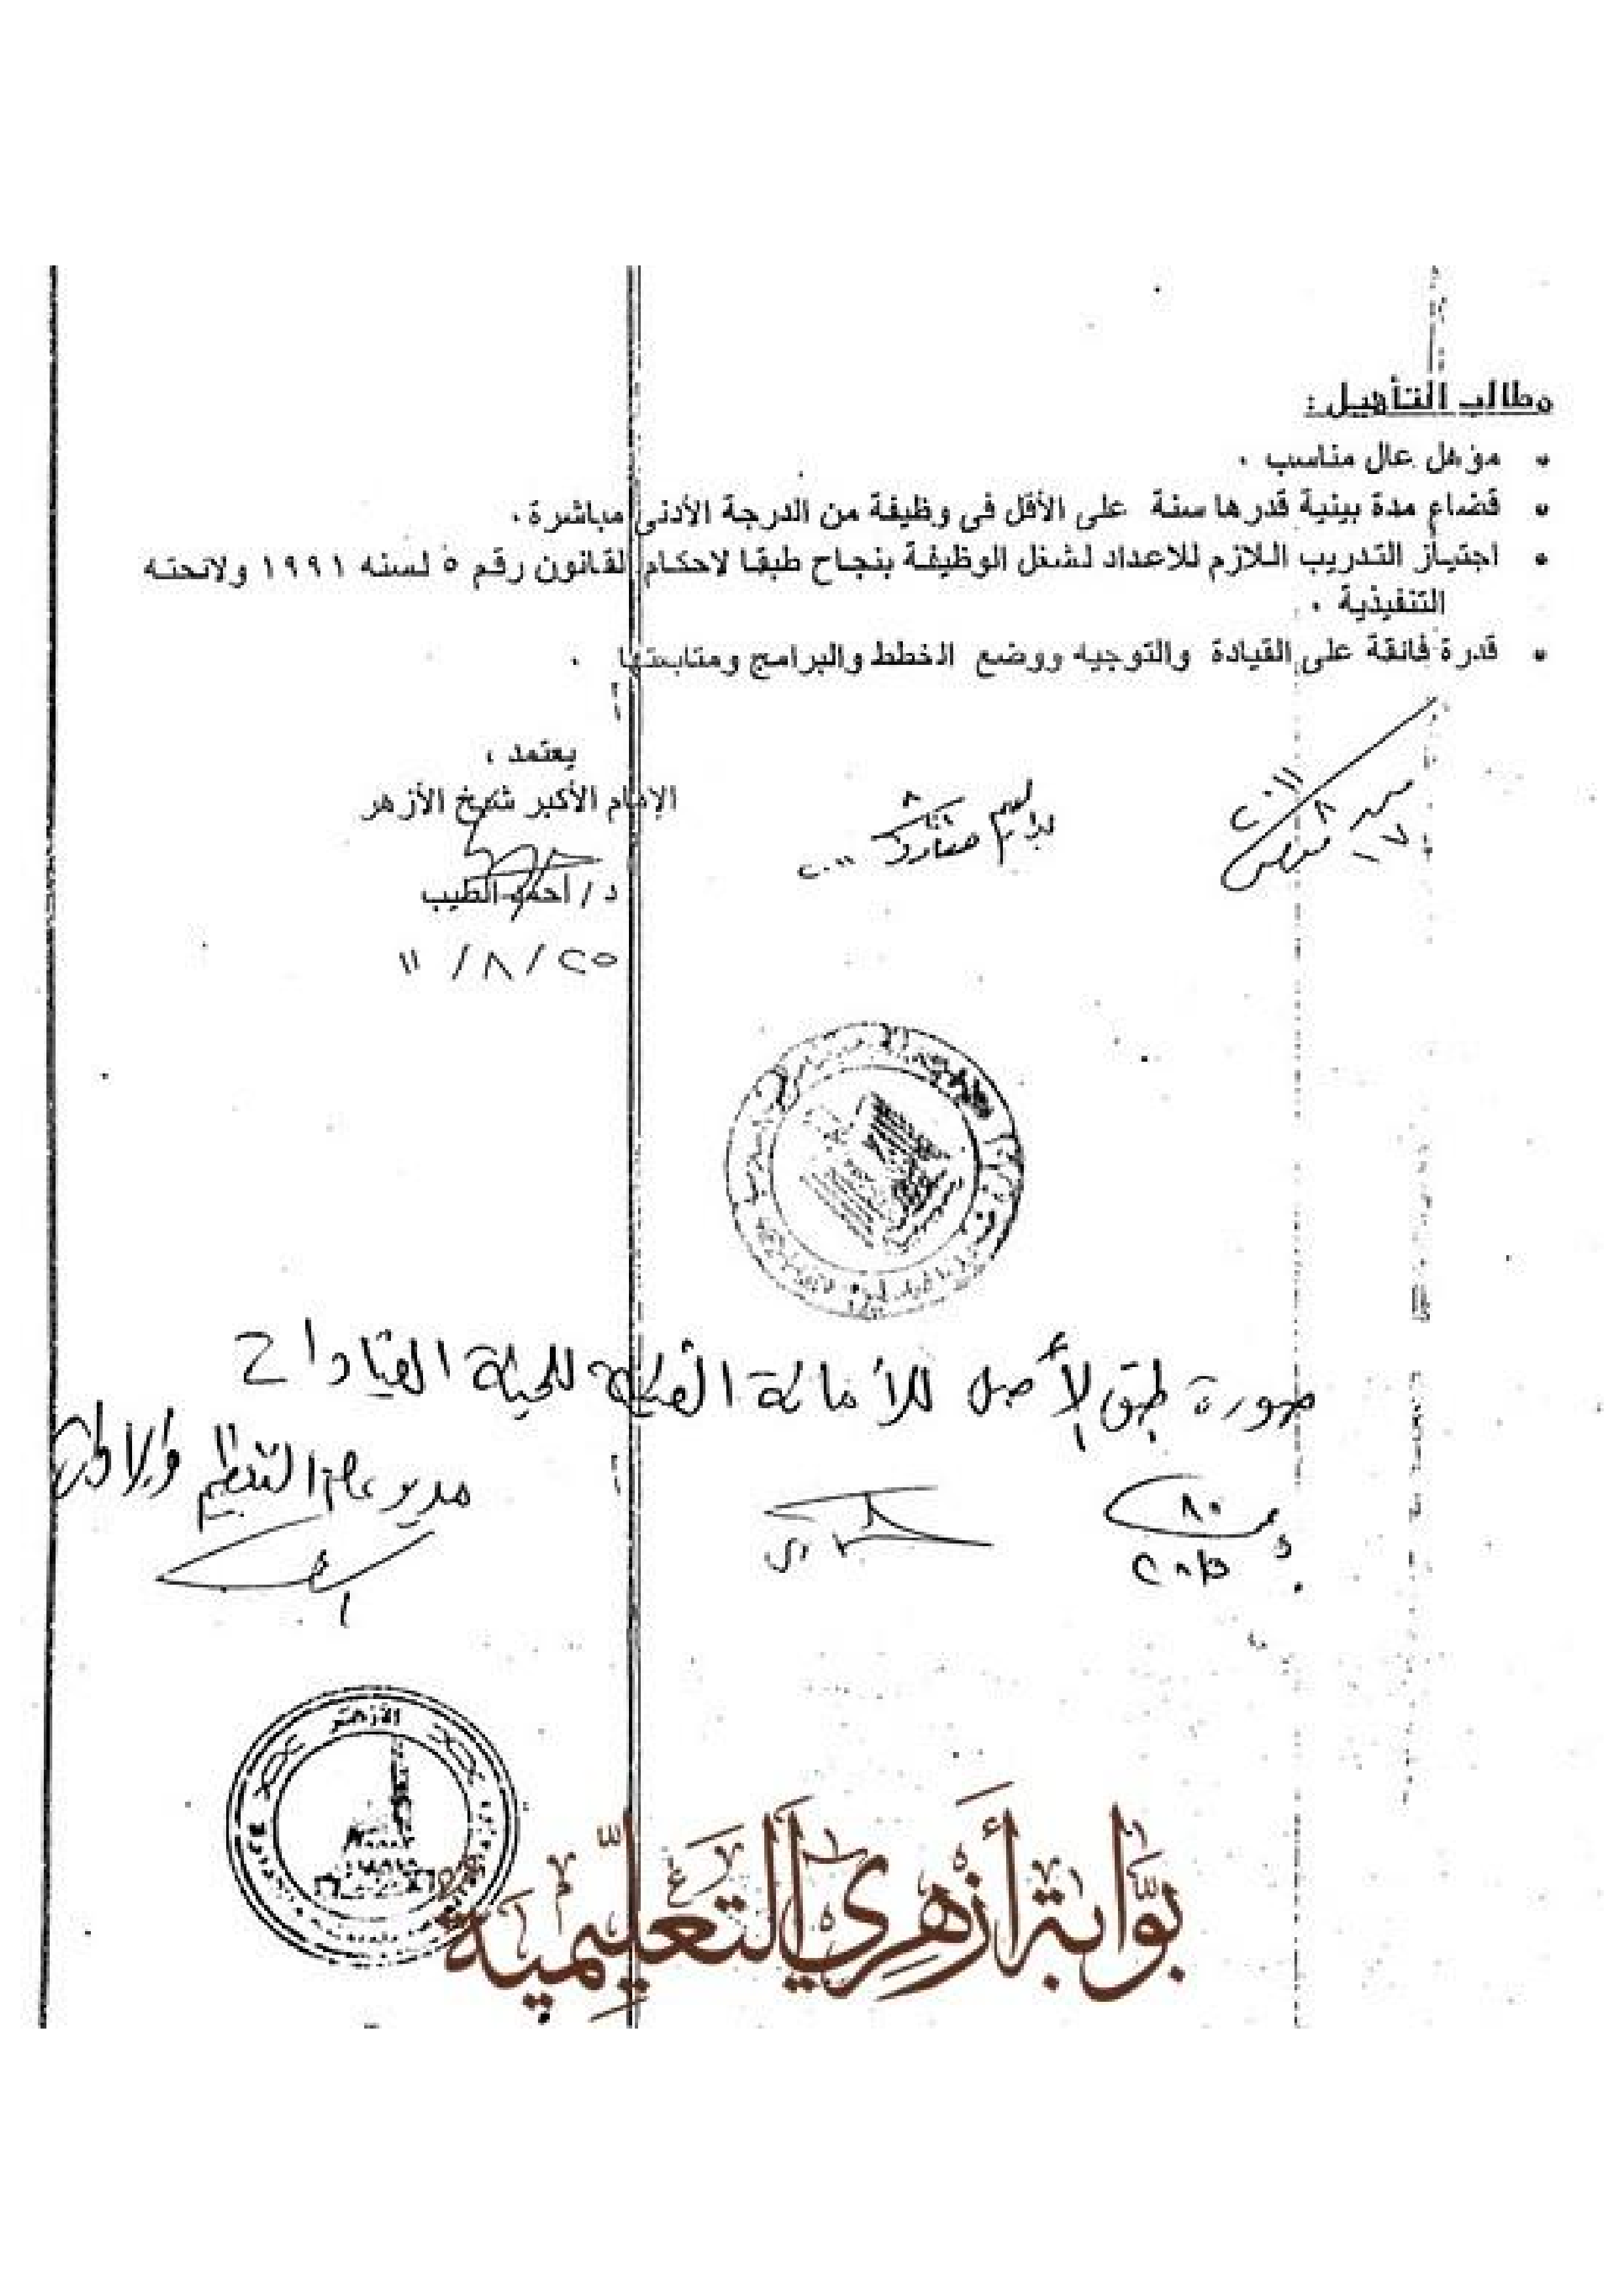 مطالب التأهيل :
• مؤهل عال مناسب .
• قضاء مدة بينية قدرها سنة على الأقل فى وظيفة من الدرجة الأدنى مباشرة .
• اجتياز التدريب اللازم للاعداد لشغل الوظيفة بنجاح طبقا لاحكام القانون رقم ٥ لسنه ١٩٩١ ولائحته
التنفيذية .
• قدرة فائقة على القيادة والتوجيه ووضع الخطط والبرامج ومتابعتها .
يعتمد ،
الإمام الأكبر شيخ الأزهر
د / أحمد الطيب
٢٥ / ٨ / ١١
٢٠١١
٢٠١١ ٨ ١٧
صورة طبق الأصل للأمانة الفنية للجنة القيادات
مدير عام التنظيم والإدارة
الأزهر
بوابة أزهري التعليمية